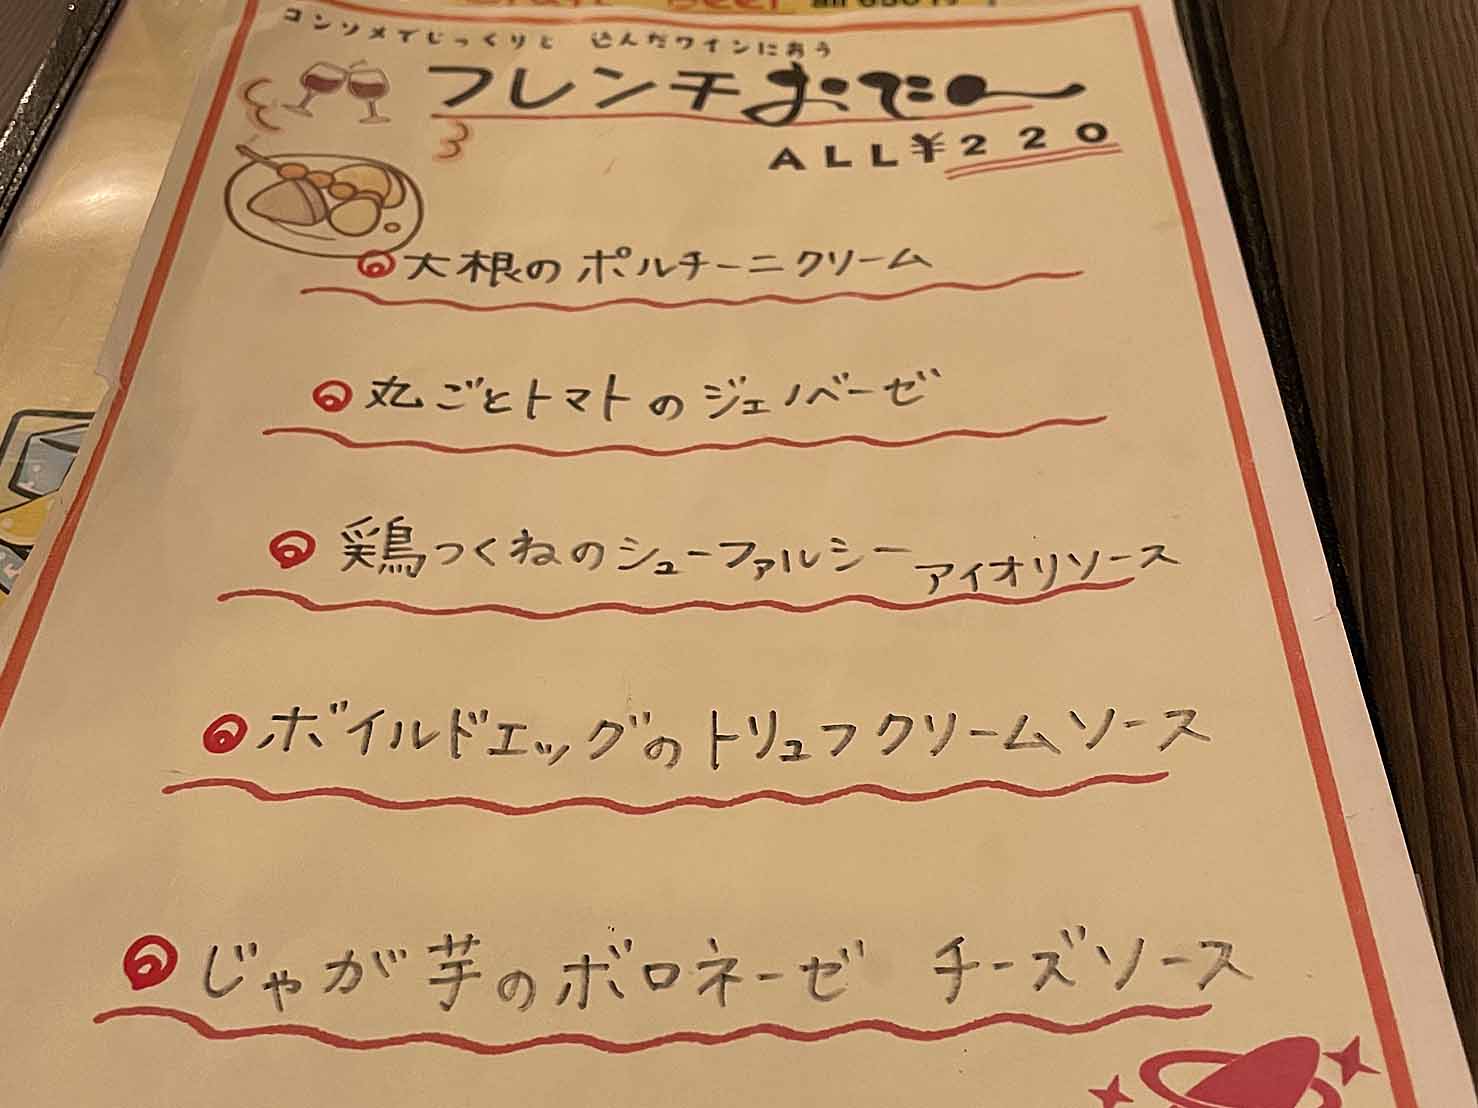 Craft Beer
コンソメでじっくりと 込んだワインにあう
フレンチおでん
ALL¥220
大根のポルチーニクリーム
丸ごとトマトのジェノベーゼ
鶏つくねのシューファルシー アイオリソース
ボイルドエッグのトリュフクリームソース
じゃが芋のボロネーゼ チーズソース